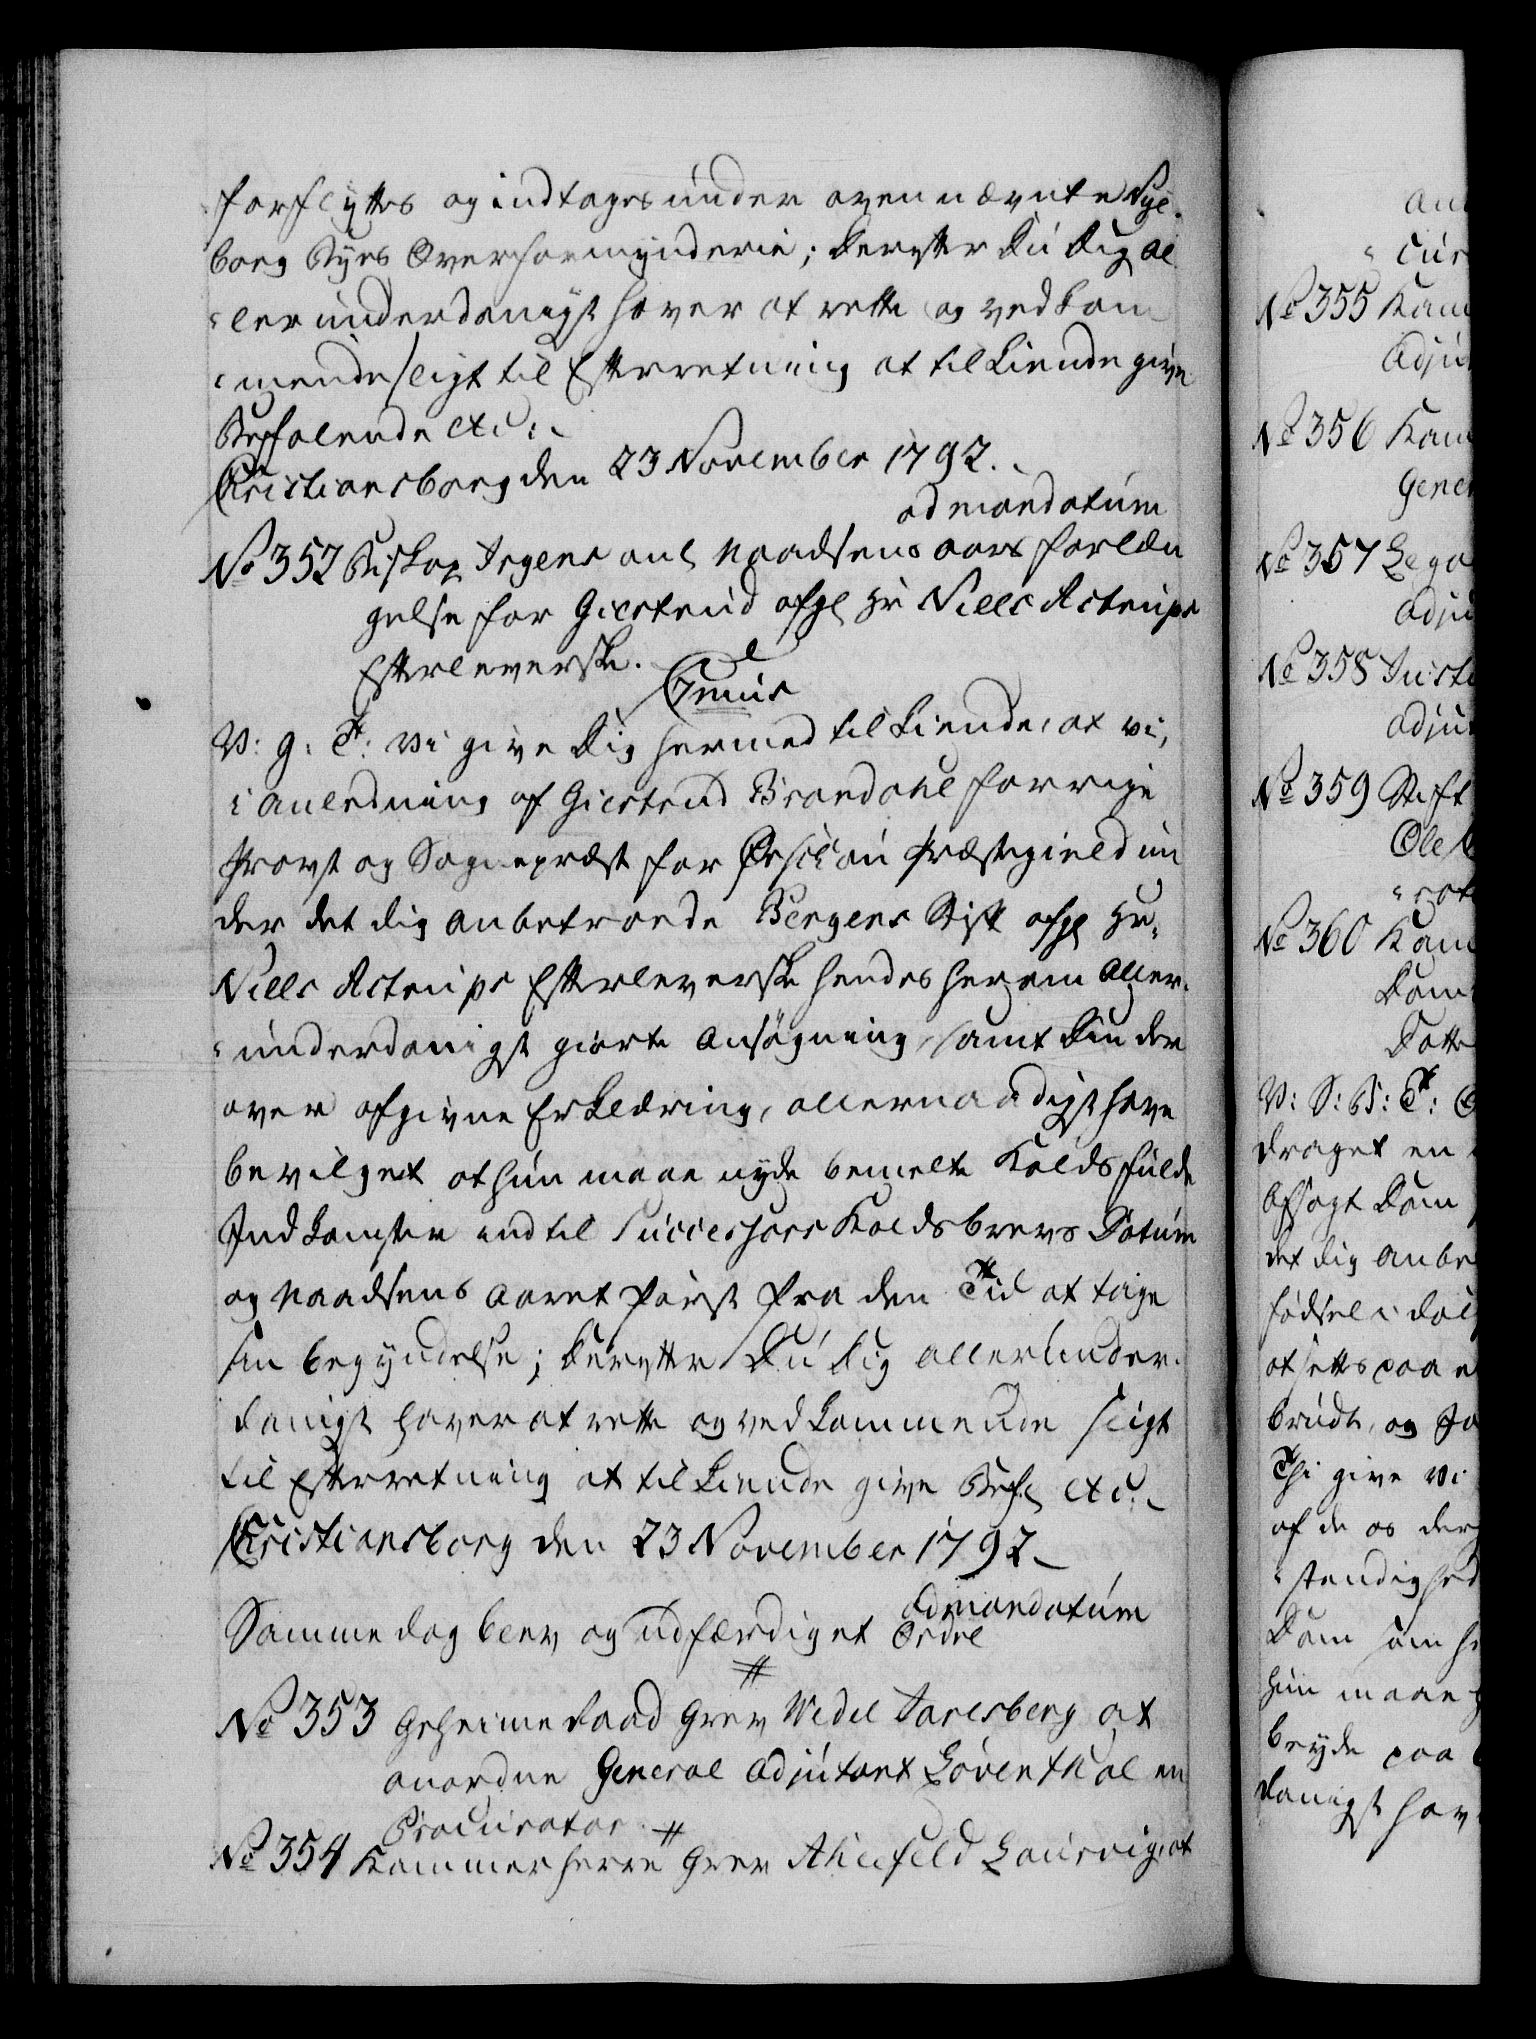 forflyttes og indtages under ovennævnte Nye-
borg Byes Overformynderie; Derefter Du Dig al-
lerunderdanigst haver at rette og vedkom-
mende sligt til Efterretning at tilkiende give
Befalende etc:
Christiansborg den 23 November 1792.
ad mandatum
No 352 Biskop Irgens anl Naadsens aars forlæn
gelse for Giertrud afgl Hr Niels Astrups
Efterleverske.
V: g: T: Vi give Dig hermed tilkiende, at vi,
i anledning af Giertrud Brandahl forrige
Provst og Sognepræst for Ørschou Præstegield un
der det dig anbetroede Bergens Stift afgl Hr.
Niels Astrups Efterleverske hendes herom Aller-
underdanigst giorte Ansøgning, samt Din der
over afgivne Erklæring, allernaadigst have
bevilget at hun maae nyde bemelte Kalds fulde
Indkomster indtil Successors Kaldsbrevs Datum
og Naadsens Aaret først fra den Tid at tage
sin begyndelse; Derefter Du Dig allerunder-
danigst haver at rette og vedkommende sligt
til Efterretning at tilkiende give Befl etc:
Christiansborg den 23 November 1792
ad mandatum
Samme dag blev og udfærdiget Ordre
No 353 Geheimeraad Grev Wedel Jarlsberg at
anordne General Adjutant Løventhal en
Procurator.
No 354 Kammerherre Grev Ahlefeld Laurvig, at
No 355 Kam
Adju
No 356 Kam
Gener
No 357 Lega
Adju
No 358 Justi
Adju
No 359 Stift
Ole
No 360 Kam
Dom
Datte
V: S: B: T:
draget en
Afsagt Dom
det dig anbe
fødsel i dol
at settes paa
brudt, og
Thi give Vi
af de os der
stendighed
Dom som
hun maae
bryde paa
danigst hav